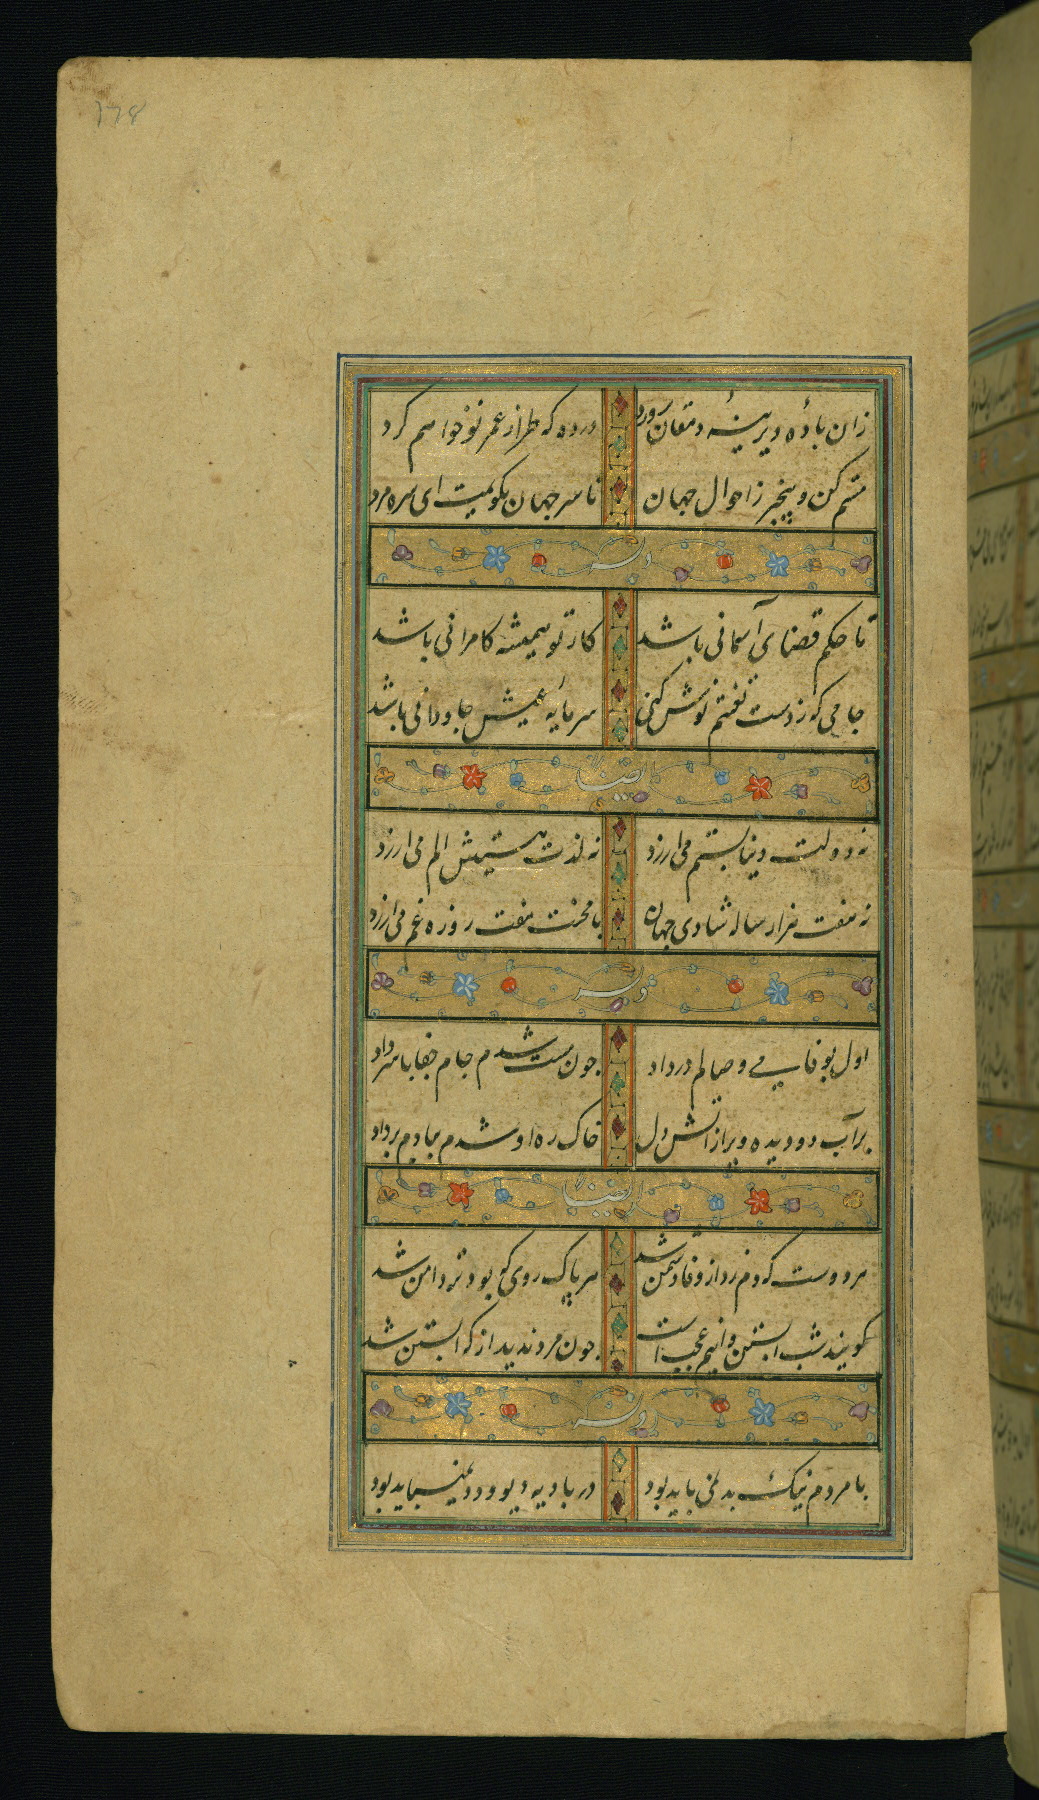 ١٧٨
زان بادهٔ دیرینهٔ دهقان پرورد در ده که طراز عمر نو خواهم کرد
مستم کن و بیخبر ز احوال جهان تا سر جهان بگویمت ای سره مرد
وله
تا حکم قضای آسمانی باشد کار تو همیشه کامرانی باشد
جامی که ز دست تغتمم نوش کنی سرمایهٔ عیش جاودانی باشد
ایضا
نه دولت دنیا بستم می ارزد نه لذت هستیش الم می ارزد
نه هفت هزار ساله شادی جهان با محنت هفت روزه غم می ارزد
وله
اول بوفا می وصالم درداد چون مست شدم جام جفا با سر داد
پر آب دو دیده و پر از آتش دل خاک ره او شدم ببادم برداد
ایضا
هر دوست که دم زد از وفا دشمن شد هر پاک روی که بود تر دامن شد
گویند شب آبستن و اینم عجب است چون مرد ندید از که آبستن شد
وله
با مردم نیک بد نمی باید بود در بادیه دیو و دد نمیباید بود